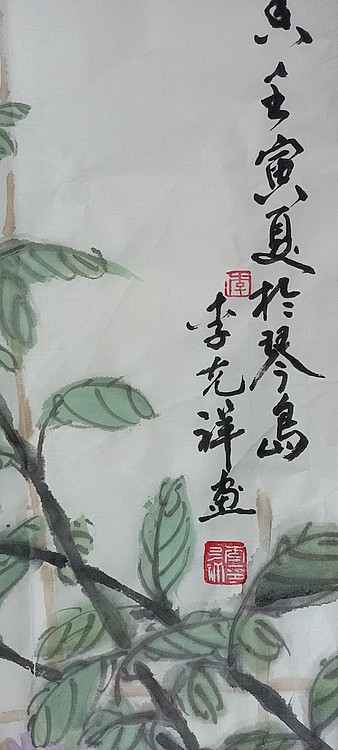 壬寅夏於琴島
李克祥画
李